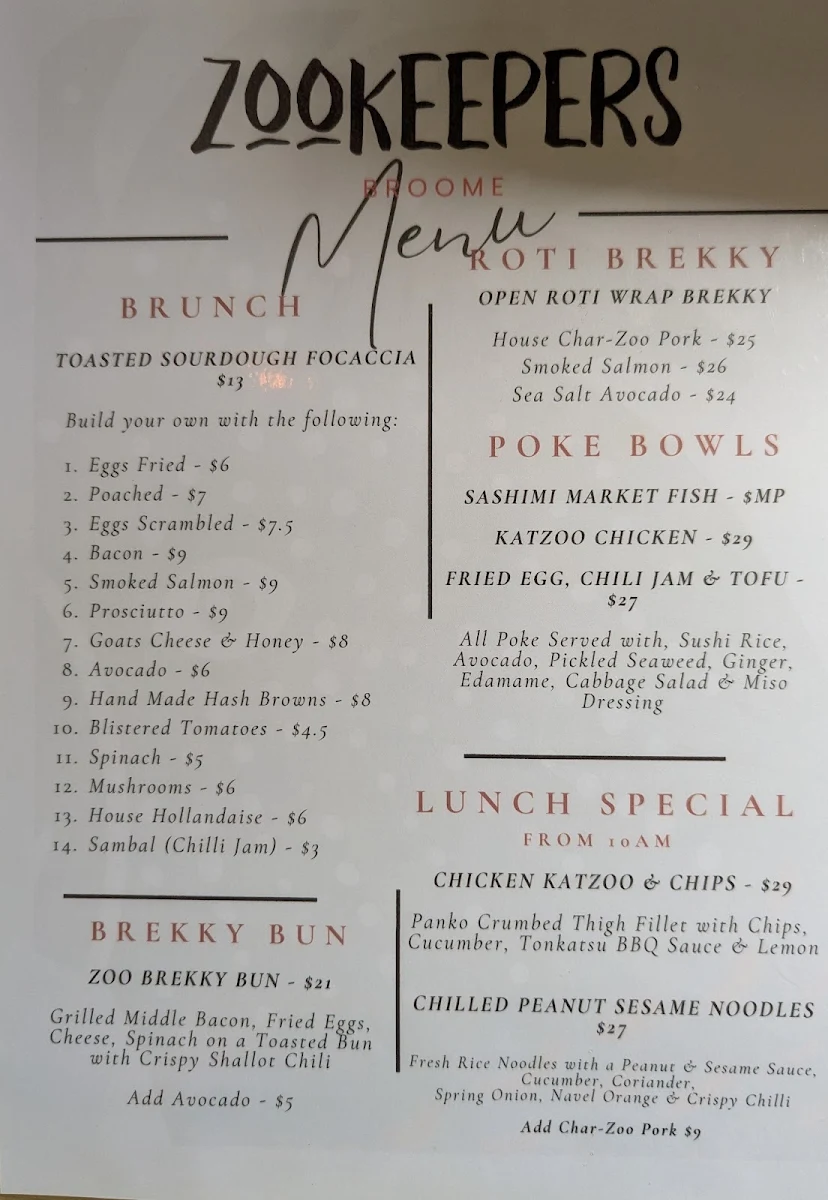 ZOOKEEPERS
BROOME
Menu
BRUNCH
TOASTED SOURDOUGH FOCACCIA
$13
Build your own with the following:
1. Eggs Fried - $6
2. Poached - $7
3. Eggs Scrambled - $7.5
4. Bacon - $9
5. Smoked Salmon - $9
6. Prosciutto - $9
7. Goats Cheese & Honey - $8
8. Avocado - $6
9. Hand Made Hash Browns - $8
10. Blistered Tomatoes - $4.5
11. Spinach - $5
12. Mushrooms - $6
13. House Hollandaise - $6
14. Sambal (Chilli Jam) - $3
BREKKY BUN
ZOO BREKKY BUN - $21
Grilled Middle Bacon, Fried Eggs,
Cheese, Spinach on a Toasted Bun
with Crispy Shallot Chili
Add Avocado - $5
ROTI BREKKY
OPEN ROTI WRAP BREKKY
House Char-Zoo Pork - $25
Smoked Salmon - $26
Sea Salt Avocado - $24
POKE BOWLS
SASHIMI MARKET FISH - $MP
KATZOO CHICKEN - $29
FRIED EGG, CHILI JAM & TOFU -
$27
All Poke Served with, Sushi Rice,
Avocado, Pickled Seaweed, Ginger,
Edamame, Cabbage Salad & Miso
Dressing
LUNCH SPECIAL
FROM 10AM
CHICKEN KATZOO & CHIPS - $29
Panko Crumbed Thigh Fillet with Chips,
Cucumber, Tonkatsu BBQ Sauce & Lemon
CHILLED PEANUT SESAME NOODLES
$27
Fresh Rice Noodles with a Peanut & Sesame Sauce,
Cucumber, Coriander,
Spring Onion, Navel Orange & Crispy Chilli
Add Char-Zoo Pork $9